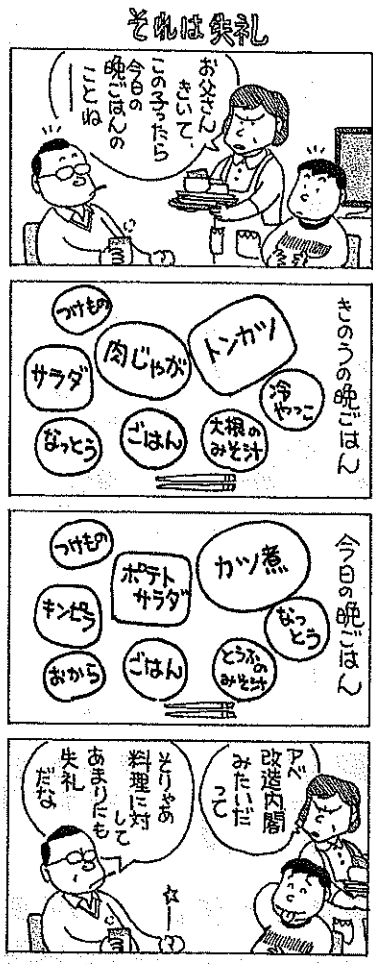 それは失礼
お父さん
きいて、
この子ったら
今日の
晩ごはんの
ことね
きのうの晩ごはん
つけもの
肉じゃが
トンカツ
サラダ
冷
やっこ
なっとう
ごはん
大根の
みそ汁
今日の晩ごはん
つけもの
ポテト
サラダ
カツ煮
キンピラ
なっ
とう
おから
ごはん
とうふの
みそ汁
アベ
改造内閣
みたいだ
って
そりゃあ
料理に対
して
あまりにも
失礼
だな